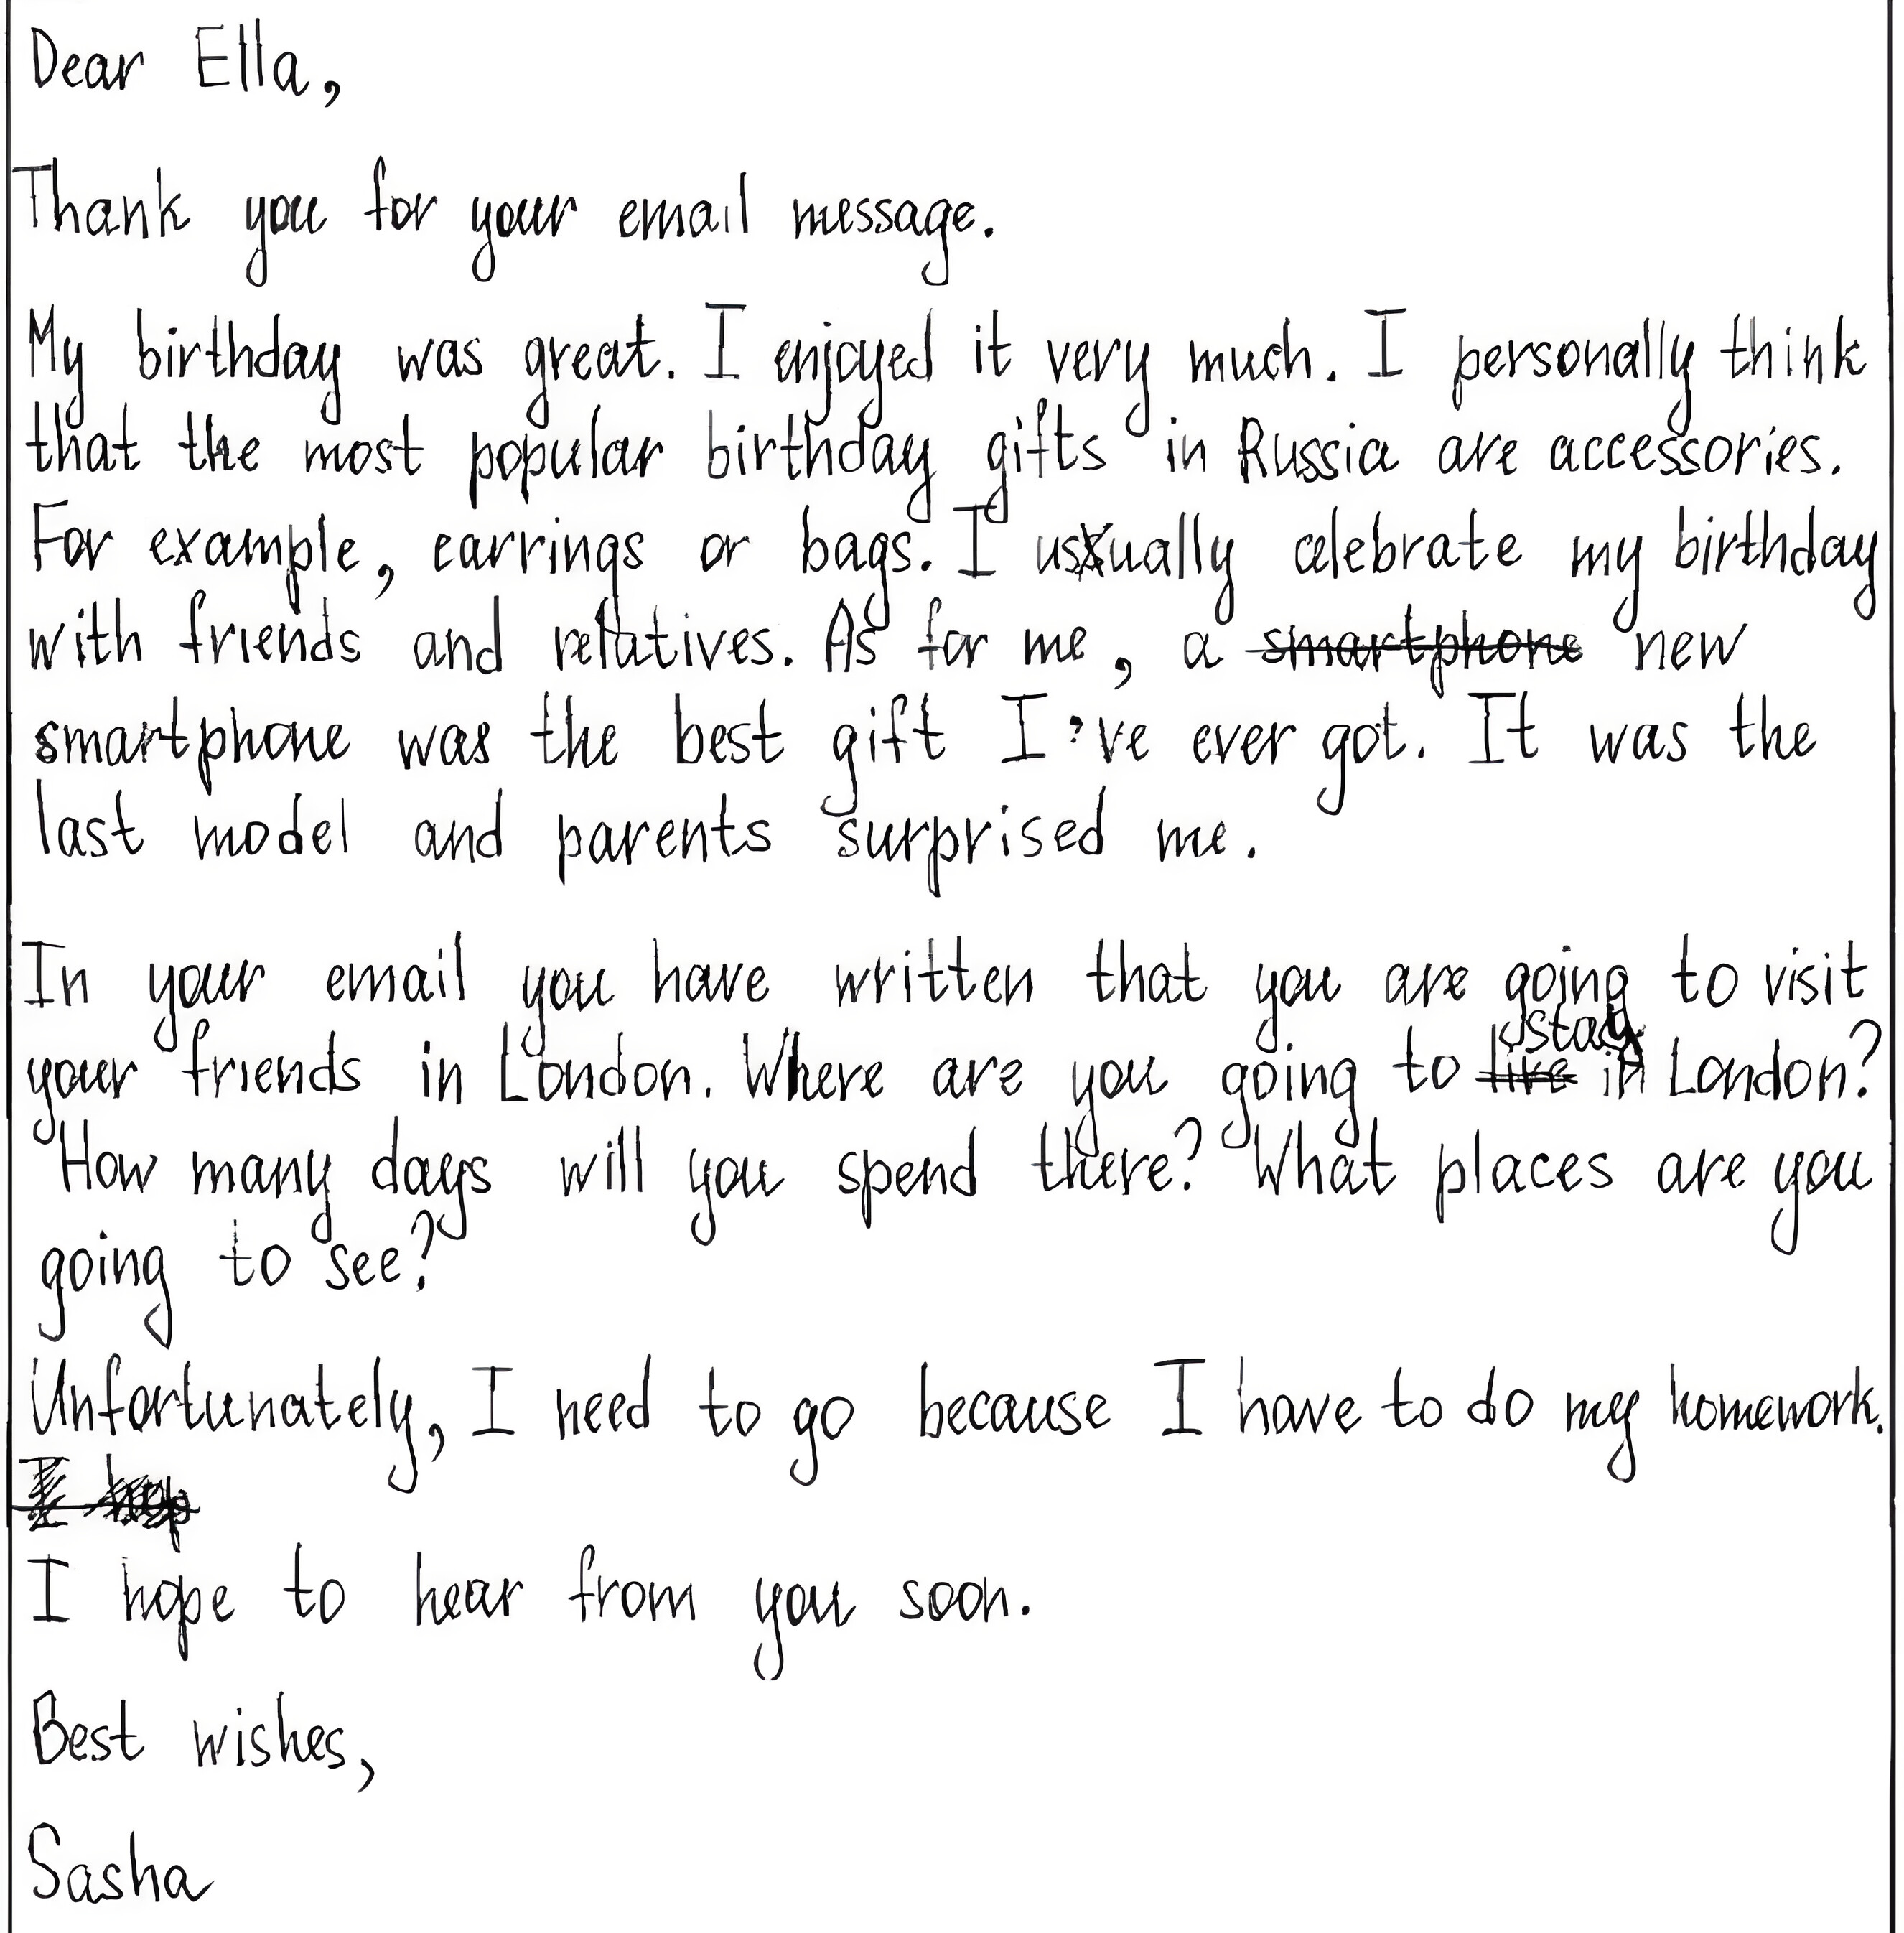 Dear Ella,
Thank you for your email message.
My birthday was great. I enjoyed it very much. I personally think
that the most popular birthday gifts in Russia are accessories.
For example, earrings or bags. I usually celebrate my birthday
with friends and relatives. As for me, a smartphone new
smartphone was the best gift I've ever got. It was the
last model and parents surprised me.
In your email you have written that you are going to visit
your friends in London. Where are you going to live stay in London?
How many days will you spend there? What places are you
going to see?
Unfortunately, I need to go because I have to do my homework.
I hop
I hope to hear from you soon.
Best wishes,
Sasha